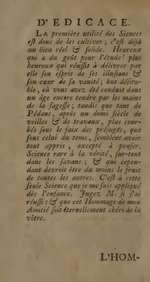 D'EDICACE.
LA première utilité des Siences
est donc de les cultiver ; c'est déjà
un bien réel & solide. Heureux
qui a du goût pour l'étude! plus
heureux qui réussit à délivrer par
elle son esprit de ses illusions &
son cœur de sa vanité; but désira-
ble, où vous avez été conduit dans
un âge encore tendre par les mains
de la sagesse, tandis que tant de
Pédans, après un demi siècle de
veilles & de travaux, plus cour-
bés sous le faix des préjugés, que
sous celui du tems, semblent avoir
tout appris, excepté à penser.
Science rare à la vérité, sur-tout
dans les savans; & qui cepen-
dant devroit être du moins le fruit
de toutes les autres. C'est à cette
seule Science que je me suis appliqué
dès l'enfance. Jugez, Mr. si j'ai
réussi; & que cet Hommage de mon
Amitié soit éternellement chéri de la
vôtre.
L'HOM-